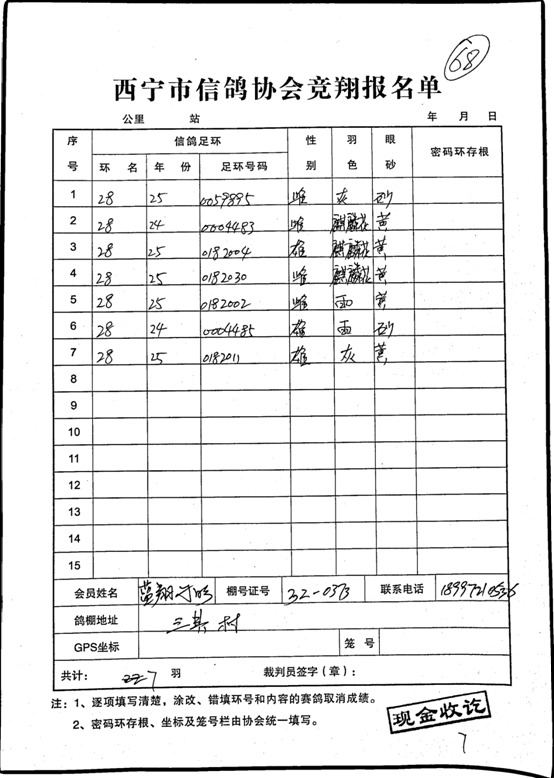 68
西宁市信鸽协会竞翔报名单
公里 站 年 月 日
序号 信鸽足环 性别 羽色 眼砂 密码环存根
环 名 年 份 足环号码
1 28 25 0059895 雌 灰 砂
2 28 24 0004483 雌 麒麟花 黄
3 28 25 0182004 雄 麒麟花 黄
4 28 25 0182030 雌 麒麟花 黄
5 28 25 0182002 雌 雨 黄
6 28 24 0004485 雄 雨 砂
7 28 25 0182011 雄 灰 黄
8
9
10
11
12
13
14
15
会员姓名 蓝翔 棚号证号 32-0373 联系电话
鸽棚地址 三其村
GPS坐标 笼 号
共计： 7 羽 裁判员签字（章）：
注：1、逐项填写清楚，涂改、错填环号和内容的赛鸽取消成绩。
2、密码环存根、坐标及笼号栏由协会统一填写。
现金收讫
7